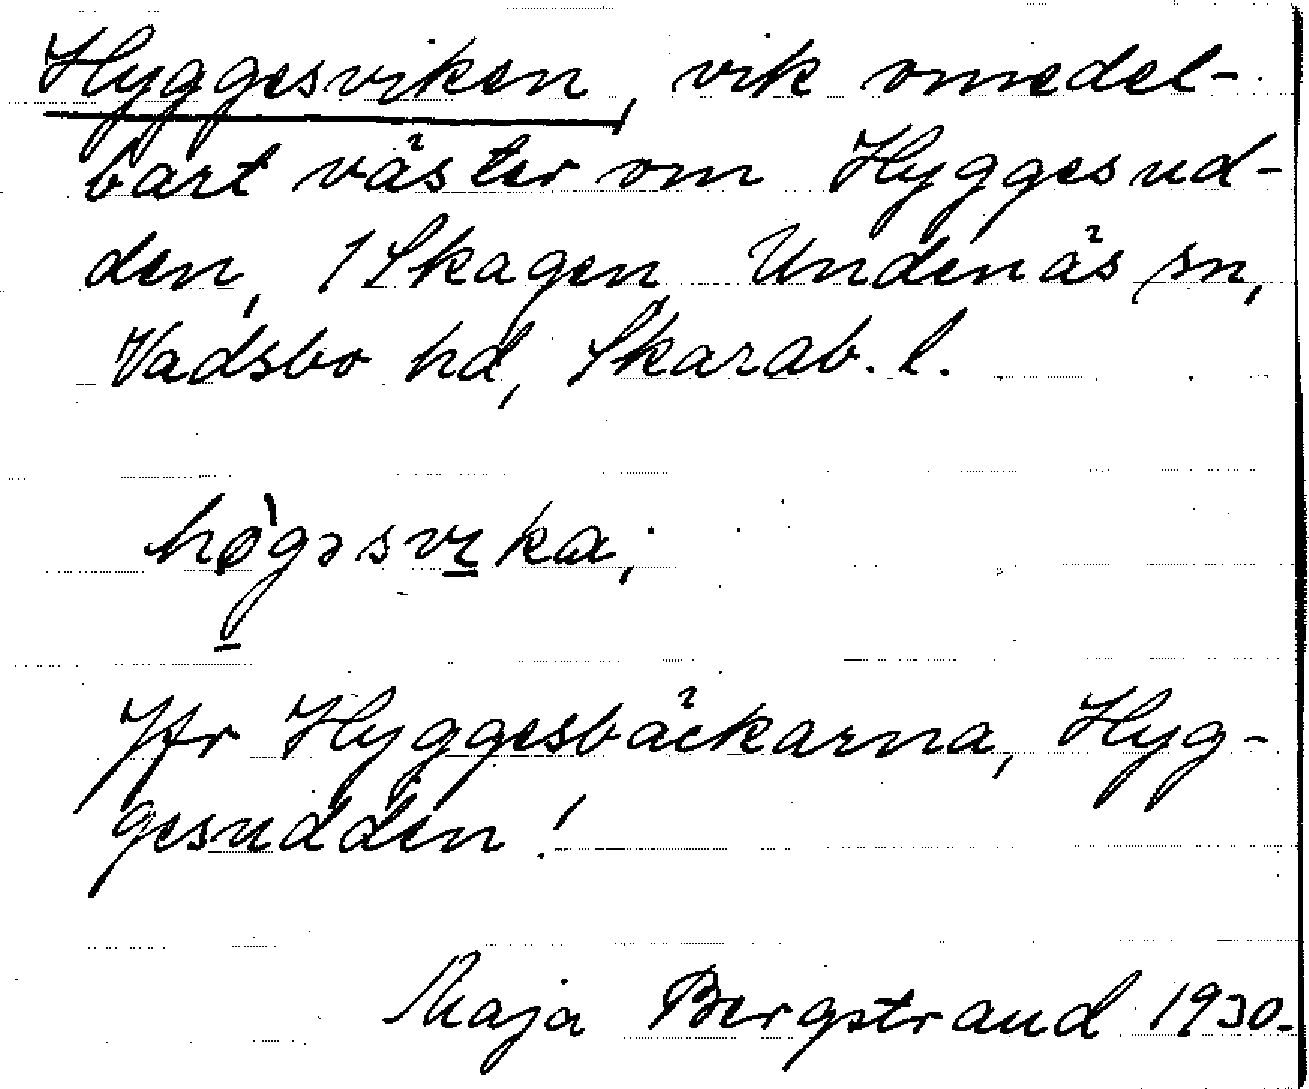 Hyggesviken, vik omedel-
bart väster om Hyggesud-
den, 1 Skagen Undenäs sn,
Vadsbo hd, Skarab. l.
Jfr Hyggesbäckarna, Hyg-
gesudden!
Maja Bergstrand 1930.